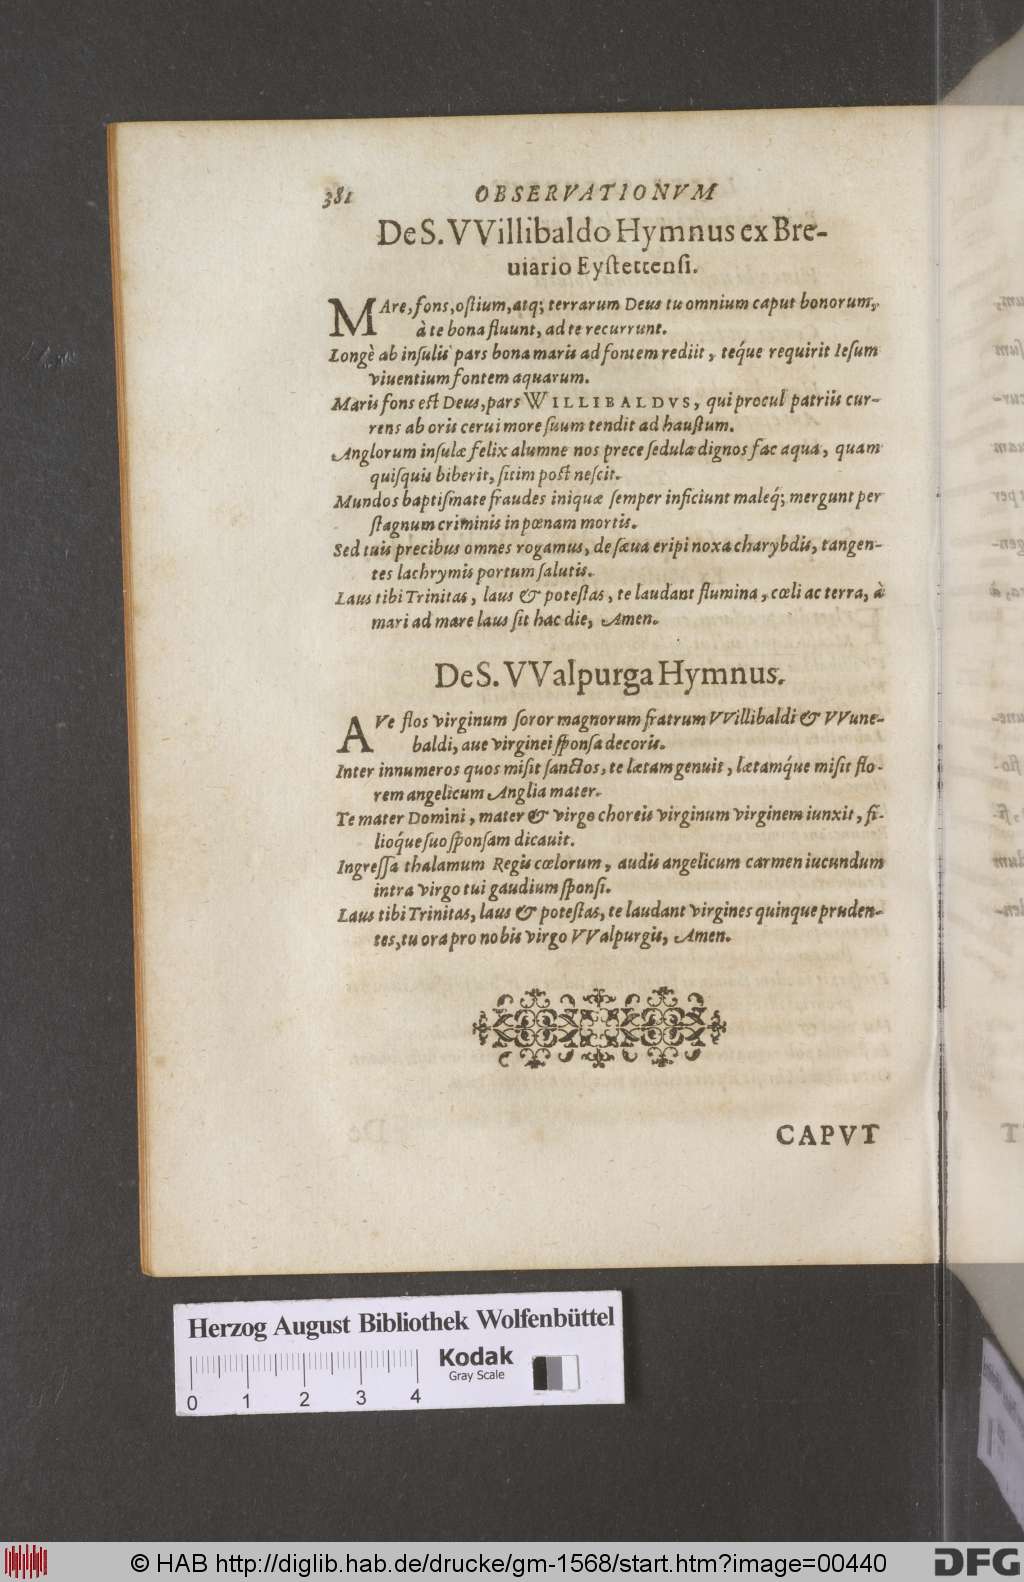 381 OBSERVATIONVM
De S. VVillibaldo Hymnus ex Bre-
uiario Eystettensi.
MAre, fons, ostium, atq; terrarum Deus tu omnium caput bonorum,
à te bona fluunt, ad te recurrunt.
Longè ab insulis pars bona maris ad fontem rediit, teq́ue requirit Iesum
viuentium fontem aquarum.
Maris fons est Deus, pars WILLIBALDVS, qui procul patriis cur-
rens ab oris cerui more suum tendit ad haustum.
Anglorum insulæ felix alumne nos prece sedula dignos fac aqua, quam
quisquis biberit, sitim post nescit.
Mundos baptismate fraudes iniquæ semper inficiunt maleq́; mergunt per
stagnum criminis in pœnam mortis.
Sed tuis precibus omnes rogamus, de sæua eripi noxa charybdis, tangen-
tes lachrymis portum salutis.
Laus tibi Trinitas, laus & potestas, te laudant flumina, cœli ac terra, à
mari ad mare laus sit hac die, Amen.
De S. VValpurga Hymnus.
AVe flos virginum soror magnorum fratrum VVillibaldi & VVune-
baldi, aue virginei sponsa decoris.
Inter innumeros quos misit sanctos, te lætam genuit, lætamq́ue misit flo-
rem angelicum Anglia mater.
Te mater Domini, mater & virgo choreis virginum virginem iunxit, fi-
lioq́ue suo sponsam dicauit.
Ingressa thalamum Regis cœlorum, audis angelicum carmen iucundum
intra virgo tui gaudium sponsi.
Laus tibi Trinitas, laus & potestas, te laudant virgines quinque pruden-
tes, tu ora pro nobis virgo VValpurgis, Amen.
CAPVT
Herzog August Bibliothek Wolfenbüttel
Kodak
Gray Scale
0 1 2 3 4
© HAB http://diglib.hab.de/drucke/gm-1568/start.htm?image=00440
DFG